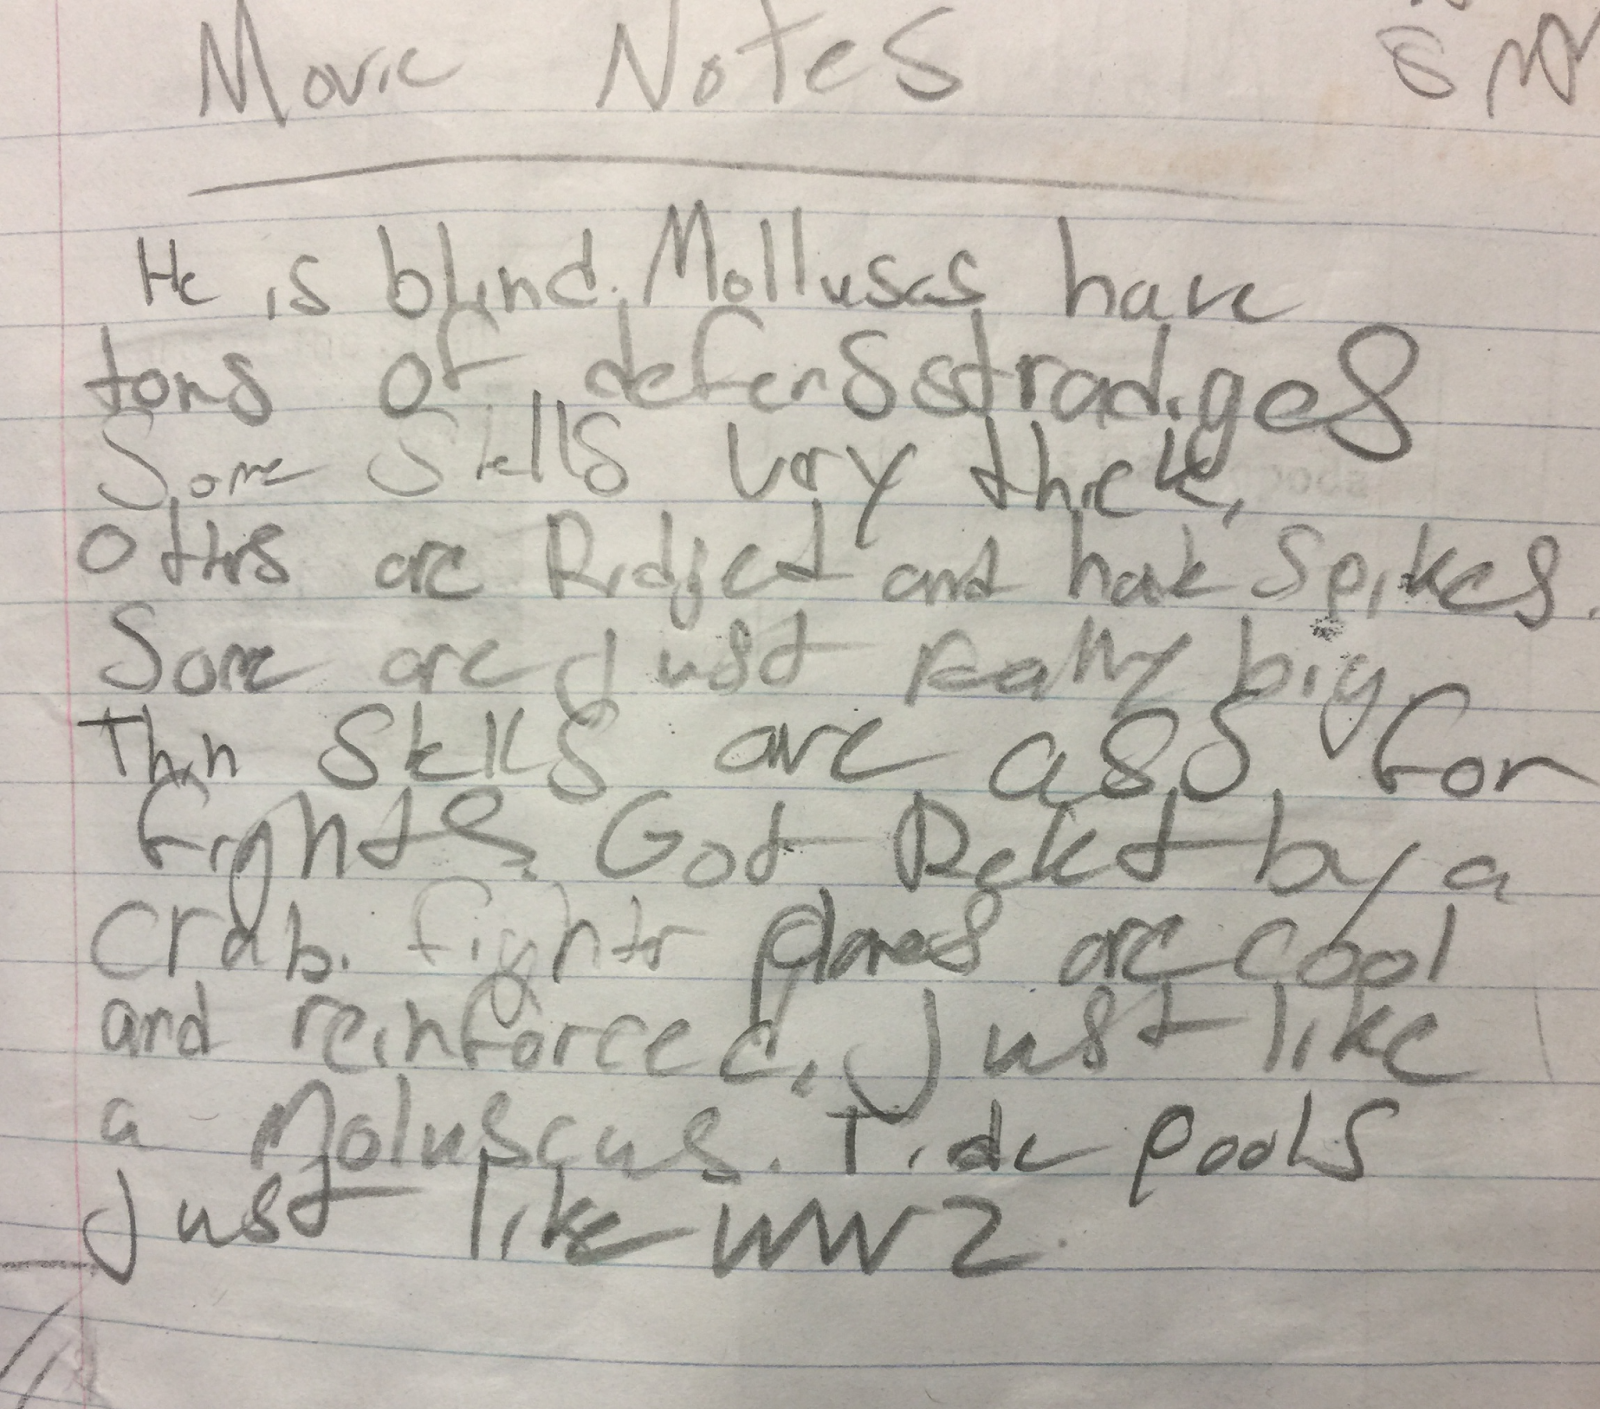 Movie Notes
He is blind. Molluscs have
tons of defens stradiges
Some Skells very thick,
othrs are Ridget and have Spikes.
Some are just really big
Thin Skells are ass for
fights. Got Rekt by a
crab. fightr planes are cool
and reinforced. Just like
a Moluscus. Tide pools
Just like WW2.